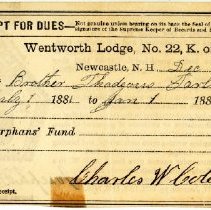 PT FOR DUES— Not genuine unless bearing on its back the Seal of
signature of the Supreme Keeper of Records and
Wentworth Lodge, No. 22, K. o
Newcastle, N. H Dec
Brother
July 1 1881 to Jan 1 188
rphans' Fund
Charles W
eceipt.